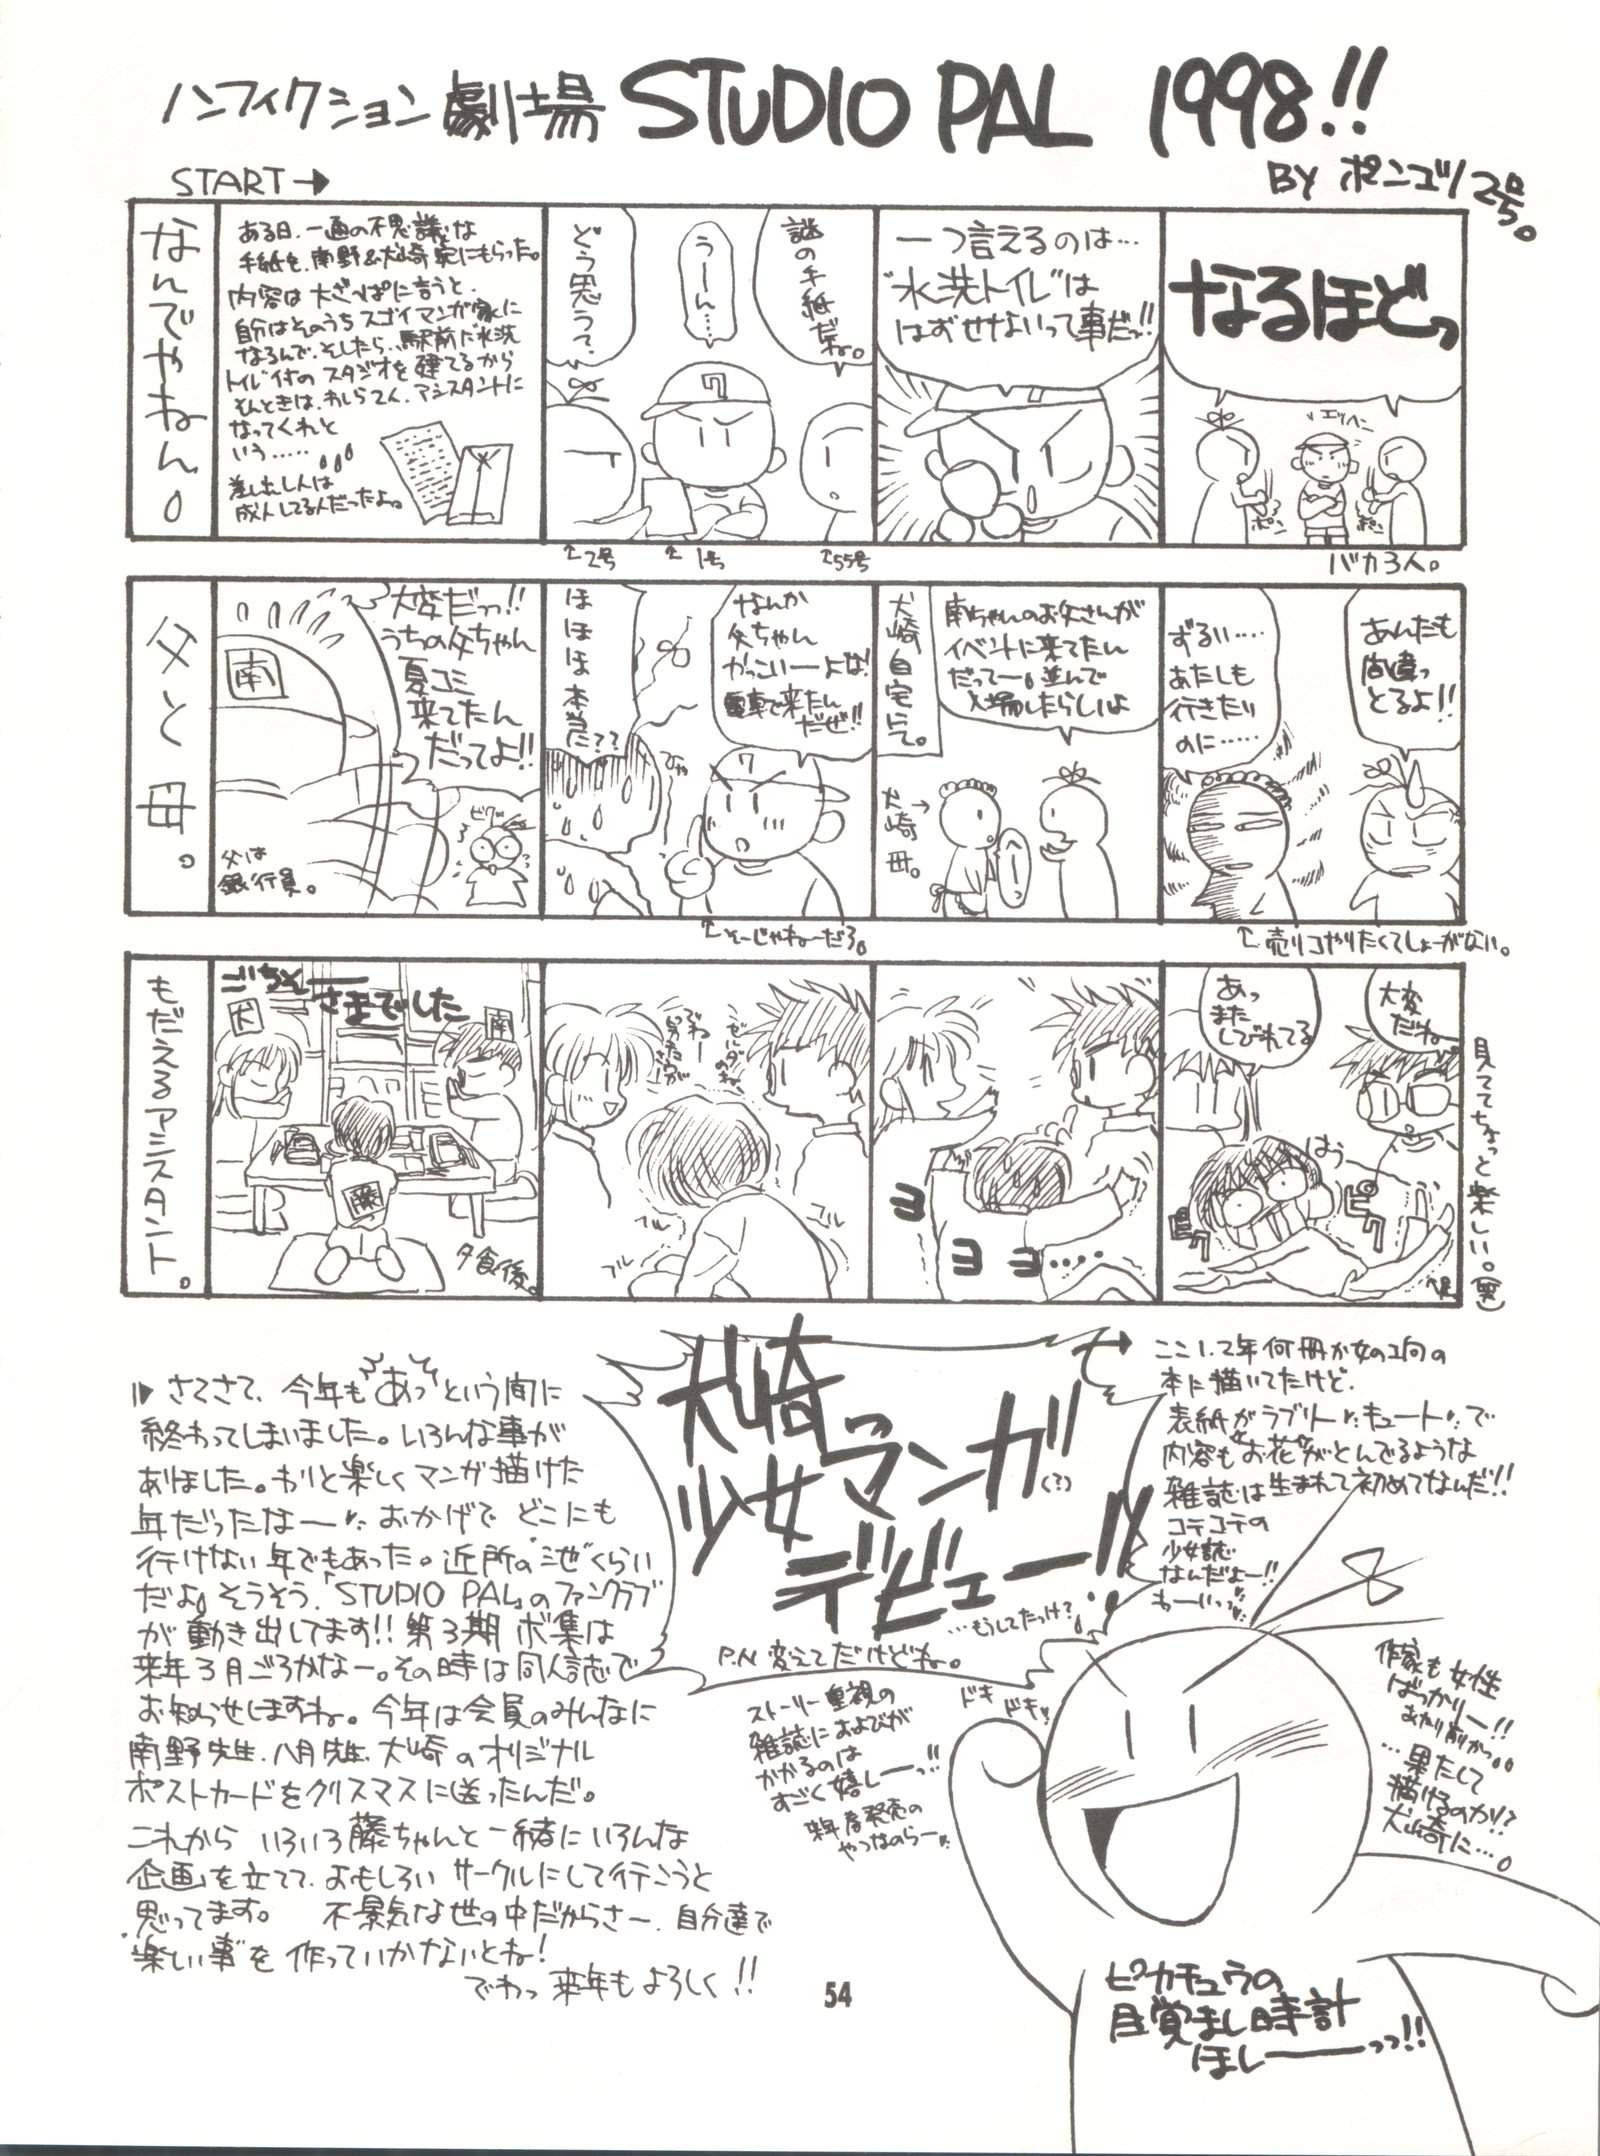 ノンフィクション劇場 STUDIO PAL 1998!!
BY ポンコツ2号。
START→
なんでやねん。
ある日、一通の不思議な
手紙を、南野&犬崎宛にもらった。
内容は大ざっぱに言うと、
自分はそのうちスゴイマンガ家に
なるんで、そしたら、駅前に水洗
トイレ付のスタジオを建てるから
そんときは、わしらてく、アシスタントに
なってくれと
いう……
差し出し人は
成人してる人だったよ。
どう思って、
うーん……
謎の手紙だね。
↑2号
↑1号
↑55号
一つ言えるのは…
"水洗トイレ"は
はずせないって事だっ!!
なるほどっ
エッヘン
ポン
ポン
バカ3人。
父と母。
南
大変だっっ!!
うちの父ちゃん
夏コミ
来てたん
だってよ!!
ビクッ
父は
銀行員。
ほほほ本当に??
なんか
父ちゃん
かっこいーよな!
電車で来たん
だぜ!!
↑そーじゃねーだろ。
犬崎自宅にて。
南ちゃんのお父さんが
イベントに来てたん
だってー。並んで
入場したらしいよ
犬崎母。→
へーっ
ずるい……
あたしも
行きたい
のに……
あんたも
間違っ
とるよ!!
↑売り子やりたくてしょーがない。
もだえるアシスタント。
ごちそーさまでした
犬
南
藤
夕食後。
ブル
ゴル
ヨ
ヨ
ヨ…
あっ
また
しびれてる
大変
だね
はう
ピク
ピク
足
見ててちょっと楽しい。(笑)
▷さてさて、今年もあっという間に
終わってしまいました。いろんな事が
ありました。わりと楽しくマンガ描けた
年だったなー♪おかげでどこにも
行けない年でもあった。近所の"池"くらい
だよ。そうそう、「STUDIO PAL」のファンクラブ
が動き出してます!!第3期ボ集は
来年3月ごろかなー。その時は同人誌で
お知らせしますね。今年は会員のみんなに
南野先生、八月先生、犬崎のオリジナル
ポストカードをクリスマスに送ったんだ。
これから いろいろ藤ちゃんと一緒にいろんな
企画を立てて、おもしろいサークルにして行こうと
思ってます。 不景気な世の中だからさー、自分達で
"楽しい事"を作っていかないとね!
でわっ来年もよろしく!!
犬崎
少女マンガ(?)
デビュー!!
…もうしてたっけ?
P.N変えてだけどね。
ここ1、2年何冊か女の子向の
本に描いてたけど、
表紙がラブリー♡キュート♡で
内容も"お花"がとんでるような
雑誌は生まれて初めてなんだ!!
コテコテの
少女誌
なんだよー!!
わーいっっ
ストーリー重視の
雑誌におよびが
かかるのは
すごく嬉しーっ!!
来年春発売の
やつなのらー♡
ドキ
ドキッ
作家も女性
ばっかりー!!
あたり前かっ。。
…果たして
描けるのか!?
犬崎に…。
ピカチュウの
目覚まし時計
ほしーーーっっ!!
54